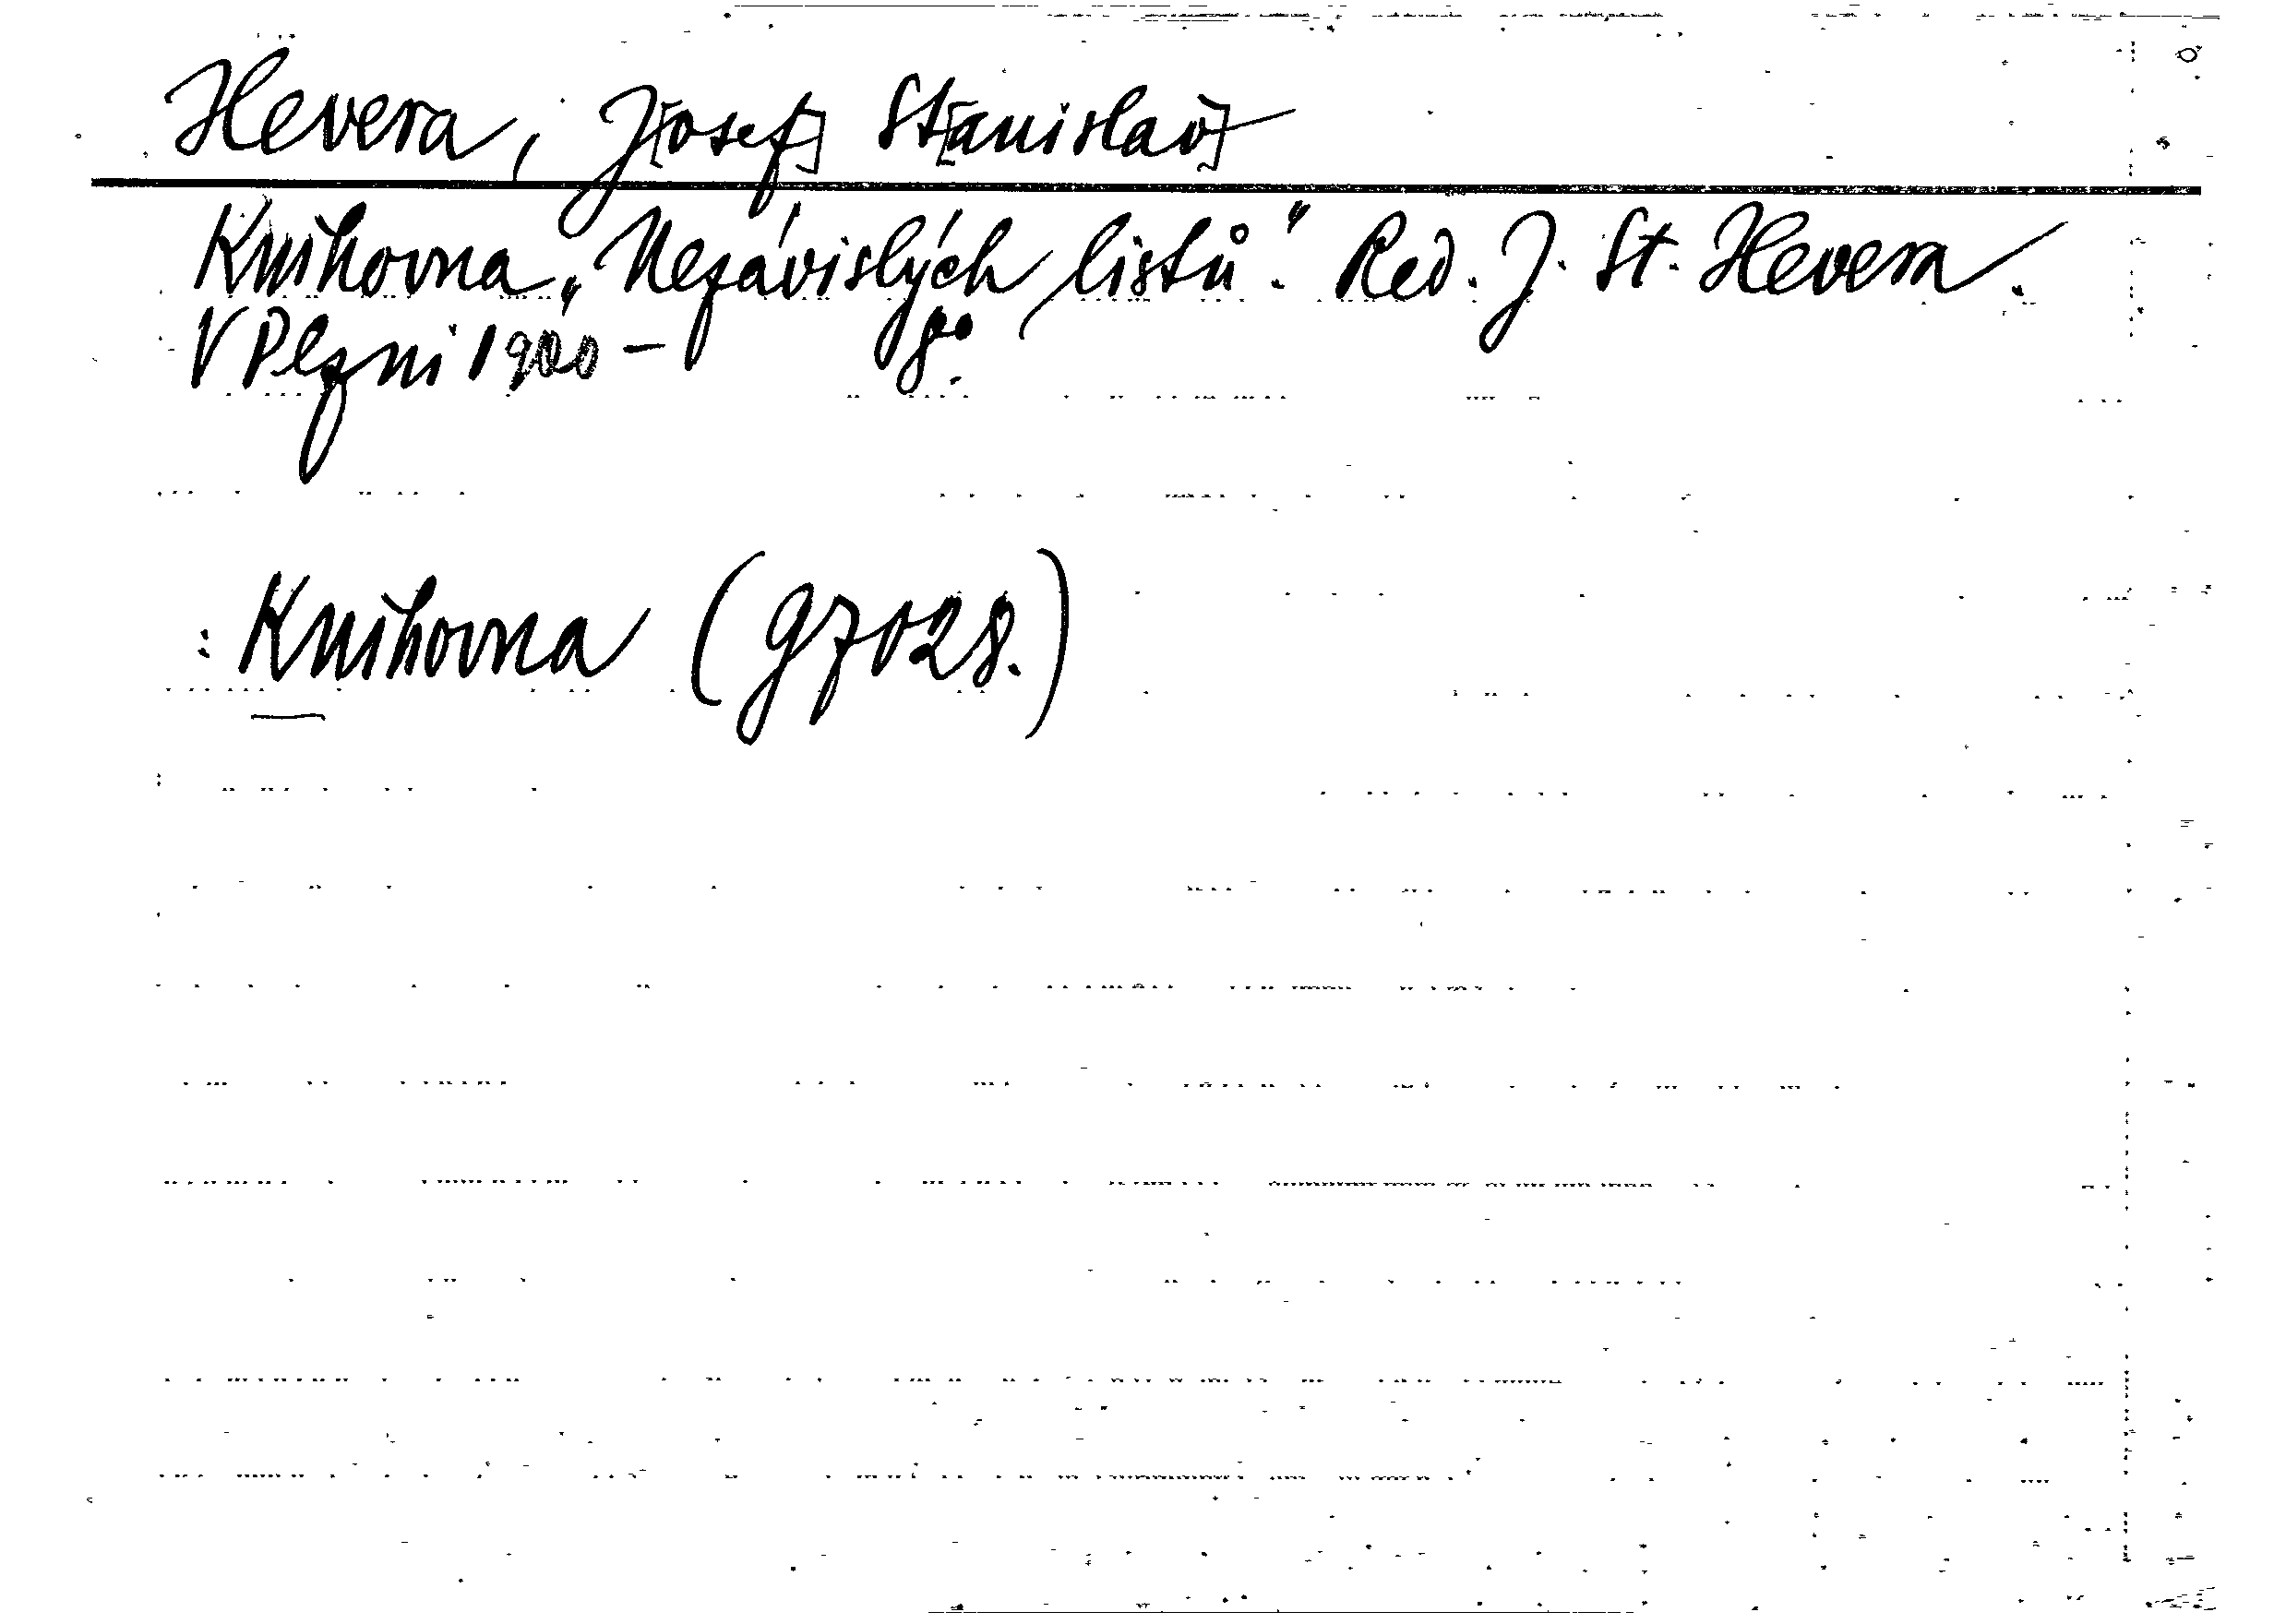 Hevera, J[osef] St[anislav]
Knihovna „Nezávislých listů". Red. J. St. Hevera.
V Plzni 1900 – 8°.
: Knihovna (97028.)